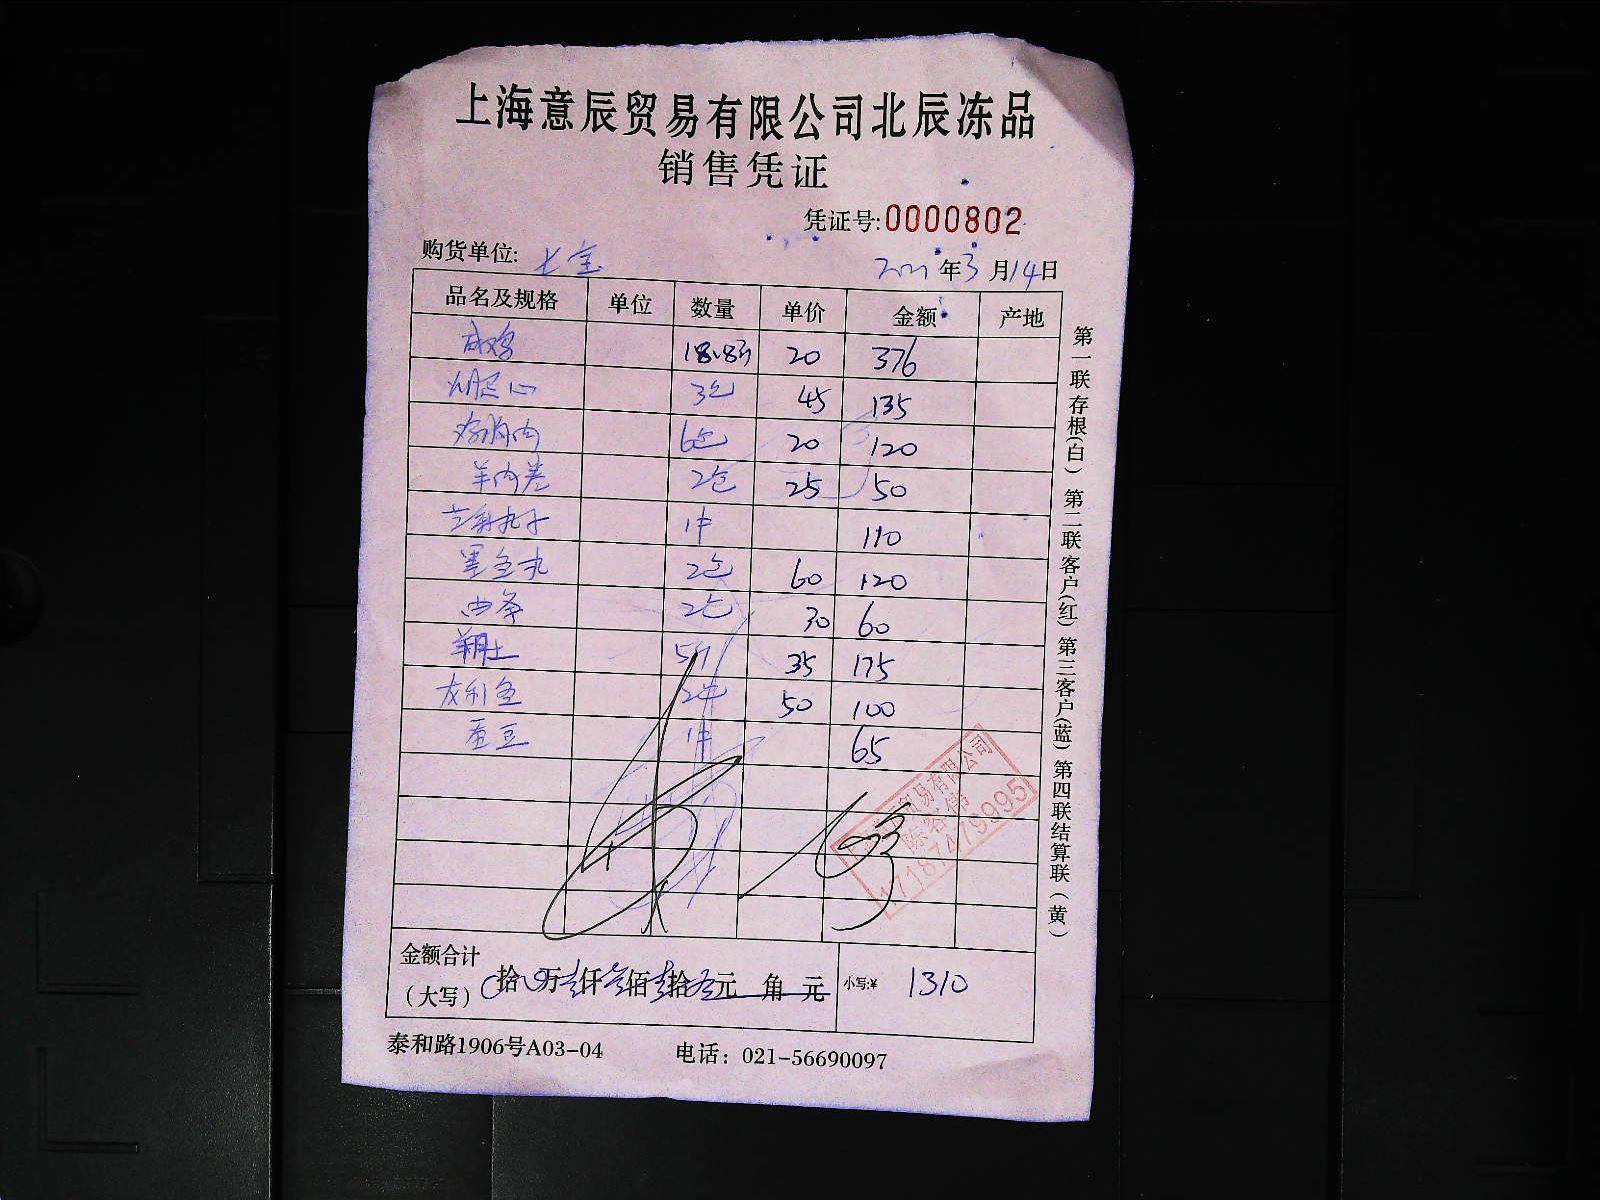 上海意辰贸易有限公司北辰冻品
销售凭证
凭证号:0000802
购货单位: 七宝
2021年3月14日
品名及规格 单位 数量 单价 金额 产地
咸鸡 18.8斤 20 376
3包 45 135
鸡胸肉 6包 20 120
羊肉卷 2包 25 50
1件 110
墨鱼丸 2包 60 120
2包 30 60
5斤 35 175
2件 50 100
蚕豆 1件 65
贸易有限公司
17187479995
金额合计
(大写) 拾 万壹仟叁佰壹拾 元 角 元 小写:¥ 1310
泰和路1906号A03-04 电话: 021-56690097
第一联存根(白) 第二联客户(红) 第三客户(蓝) 第四联结算联(黄)